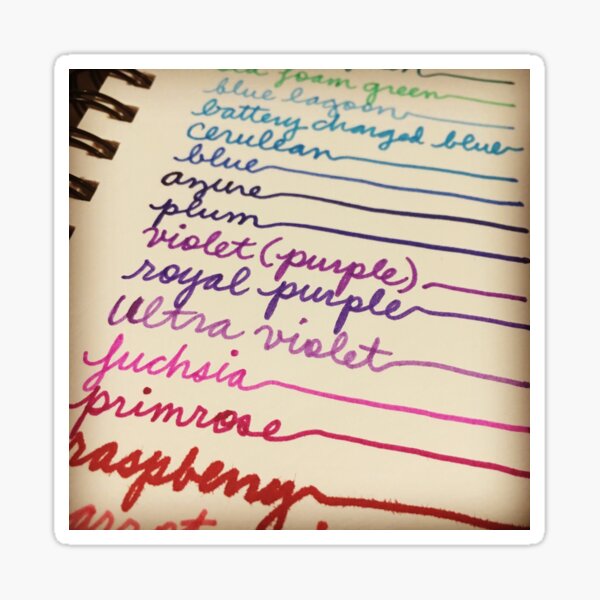 foam green
blue lagoon
battery charged blue
cerulean
blue
azure
plum
violet (purple)
royal purple
Ultra violet
fuchsia
primrose
raspberry